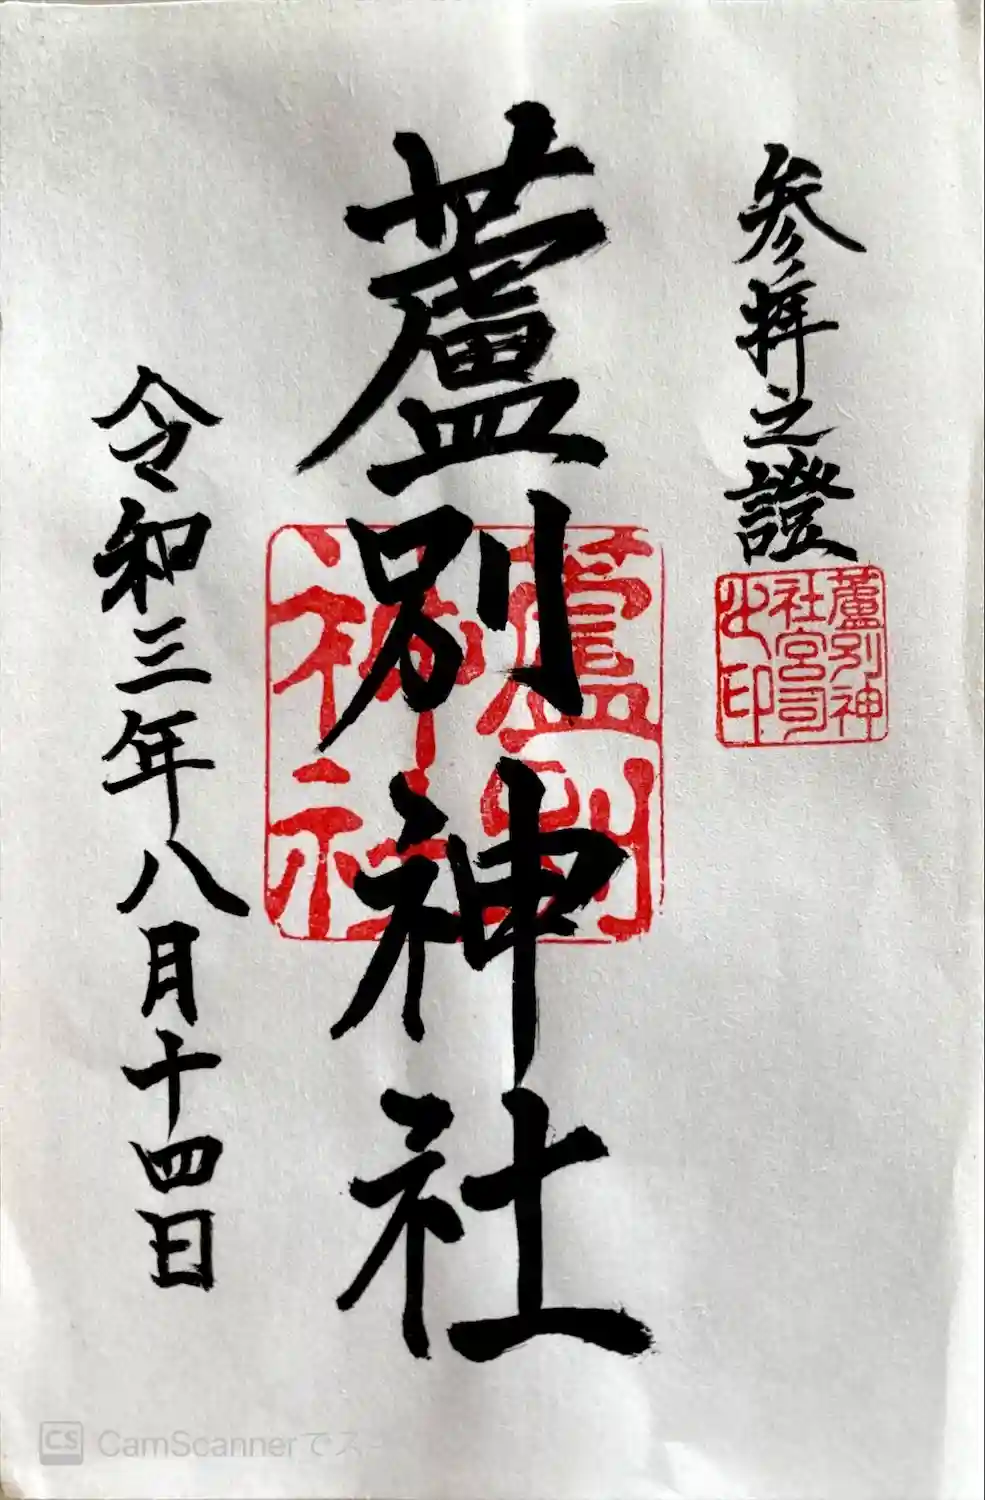 參拜之證
蘆別神
社宮司
之印
蘆別神社
蘆別
神社
令和三年八月十四日
CS CamScannerでス